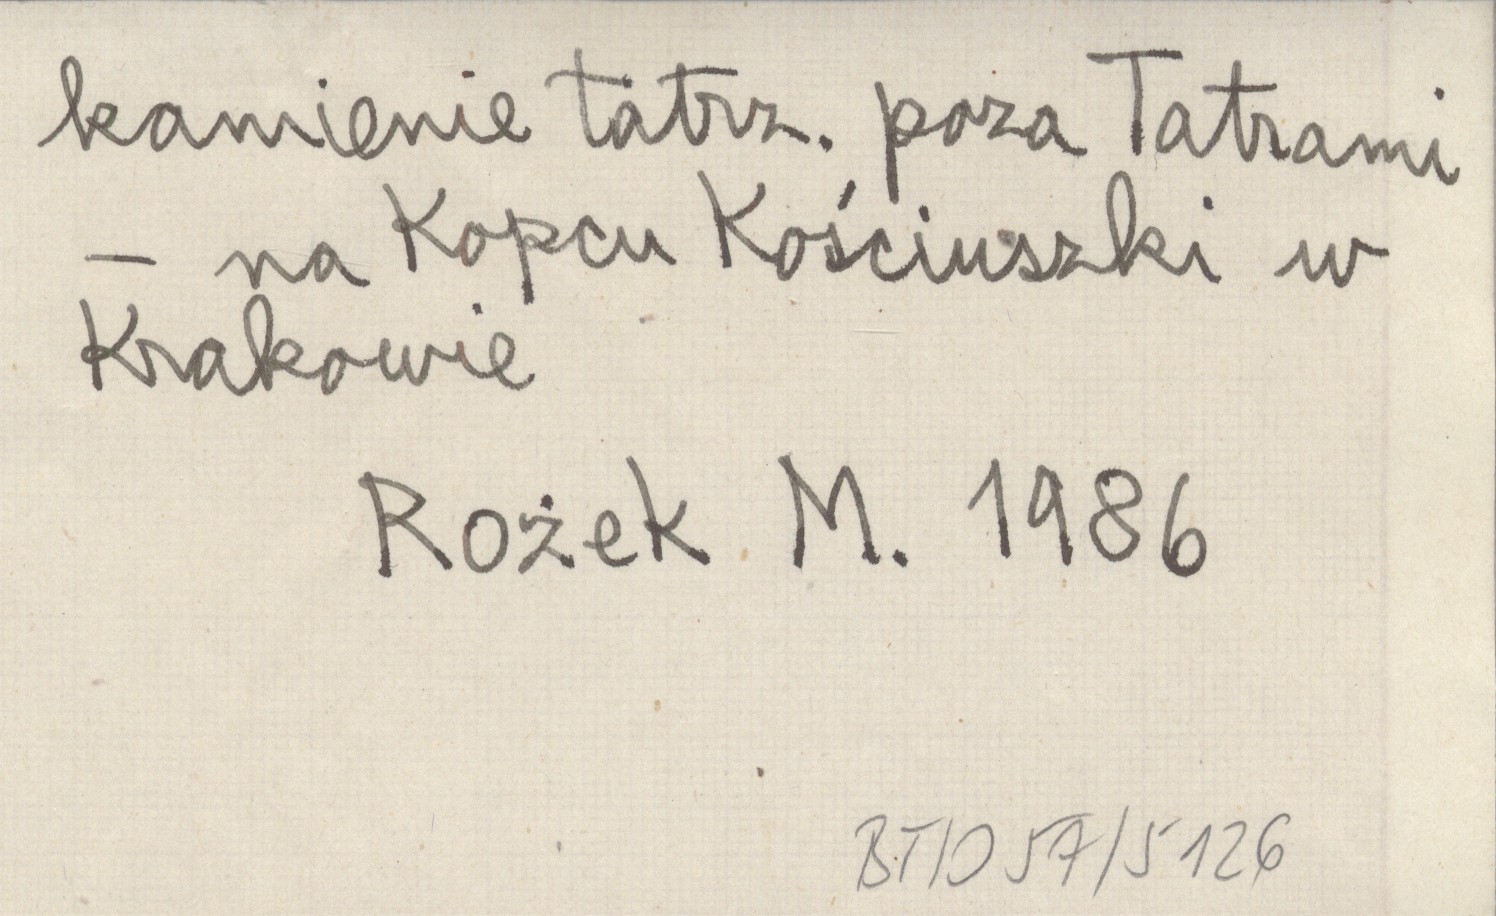 kamienie tatrz. poza Tatrami
– na Kopcu Kościuszki w
Krakowie
Rożek M. 1986
BT/O 57/5126